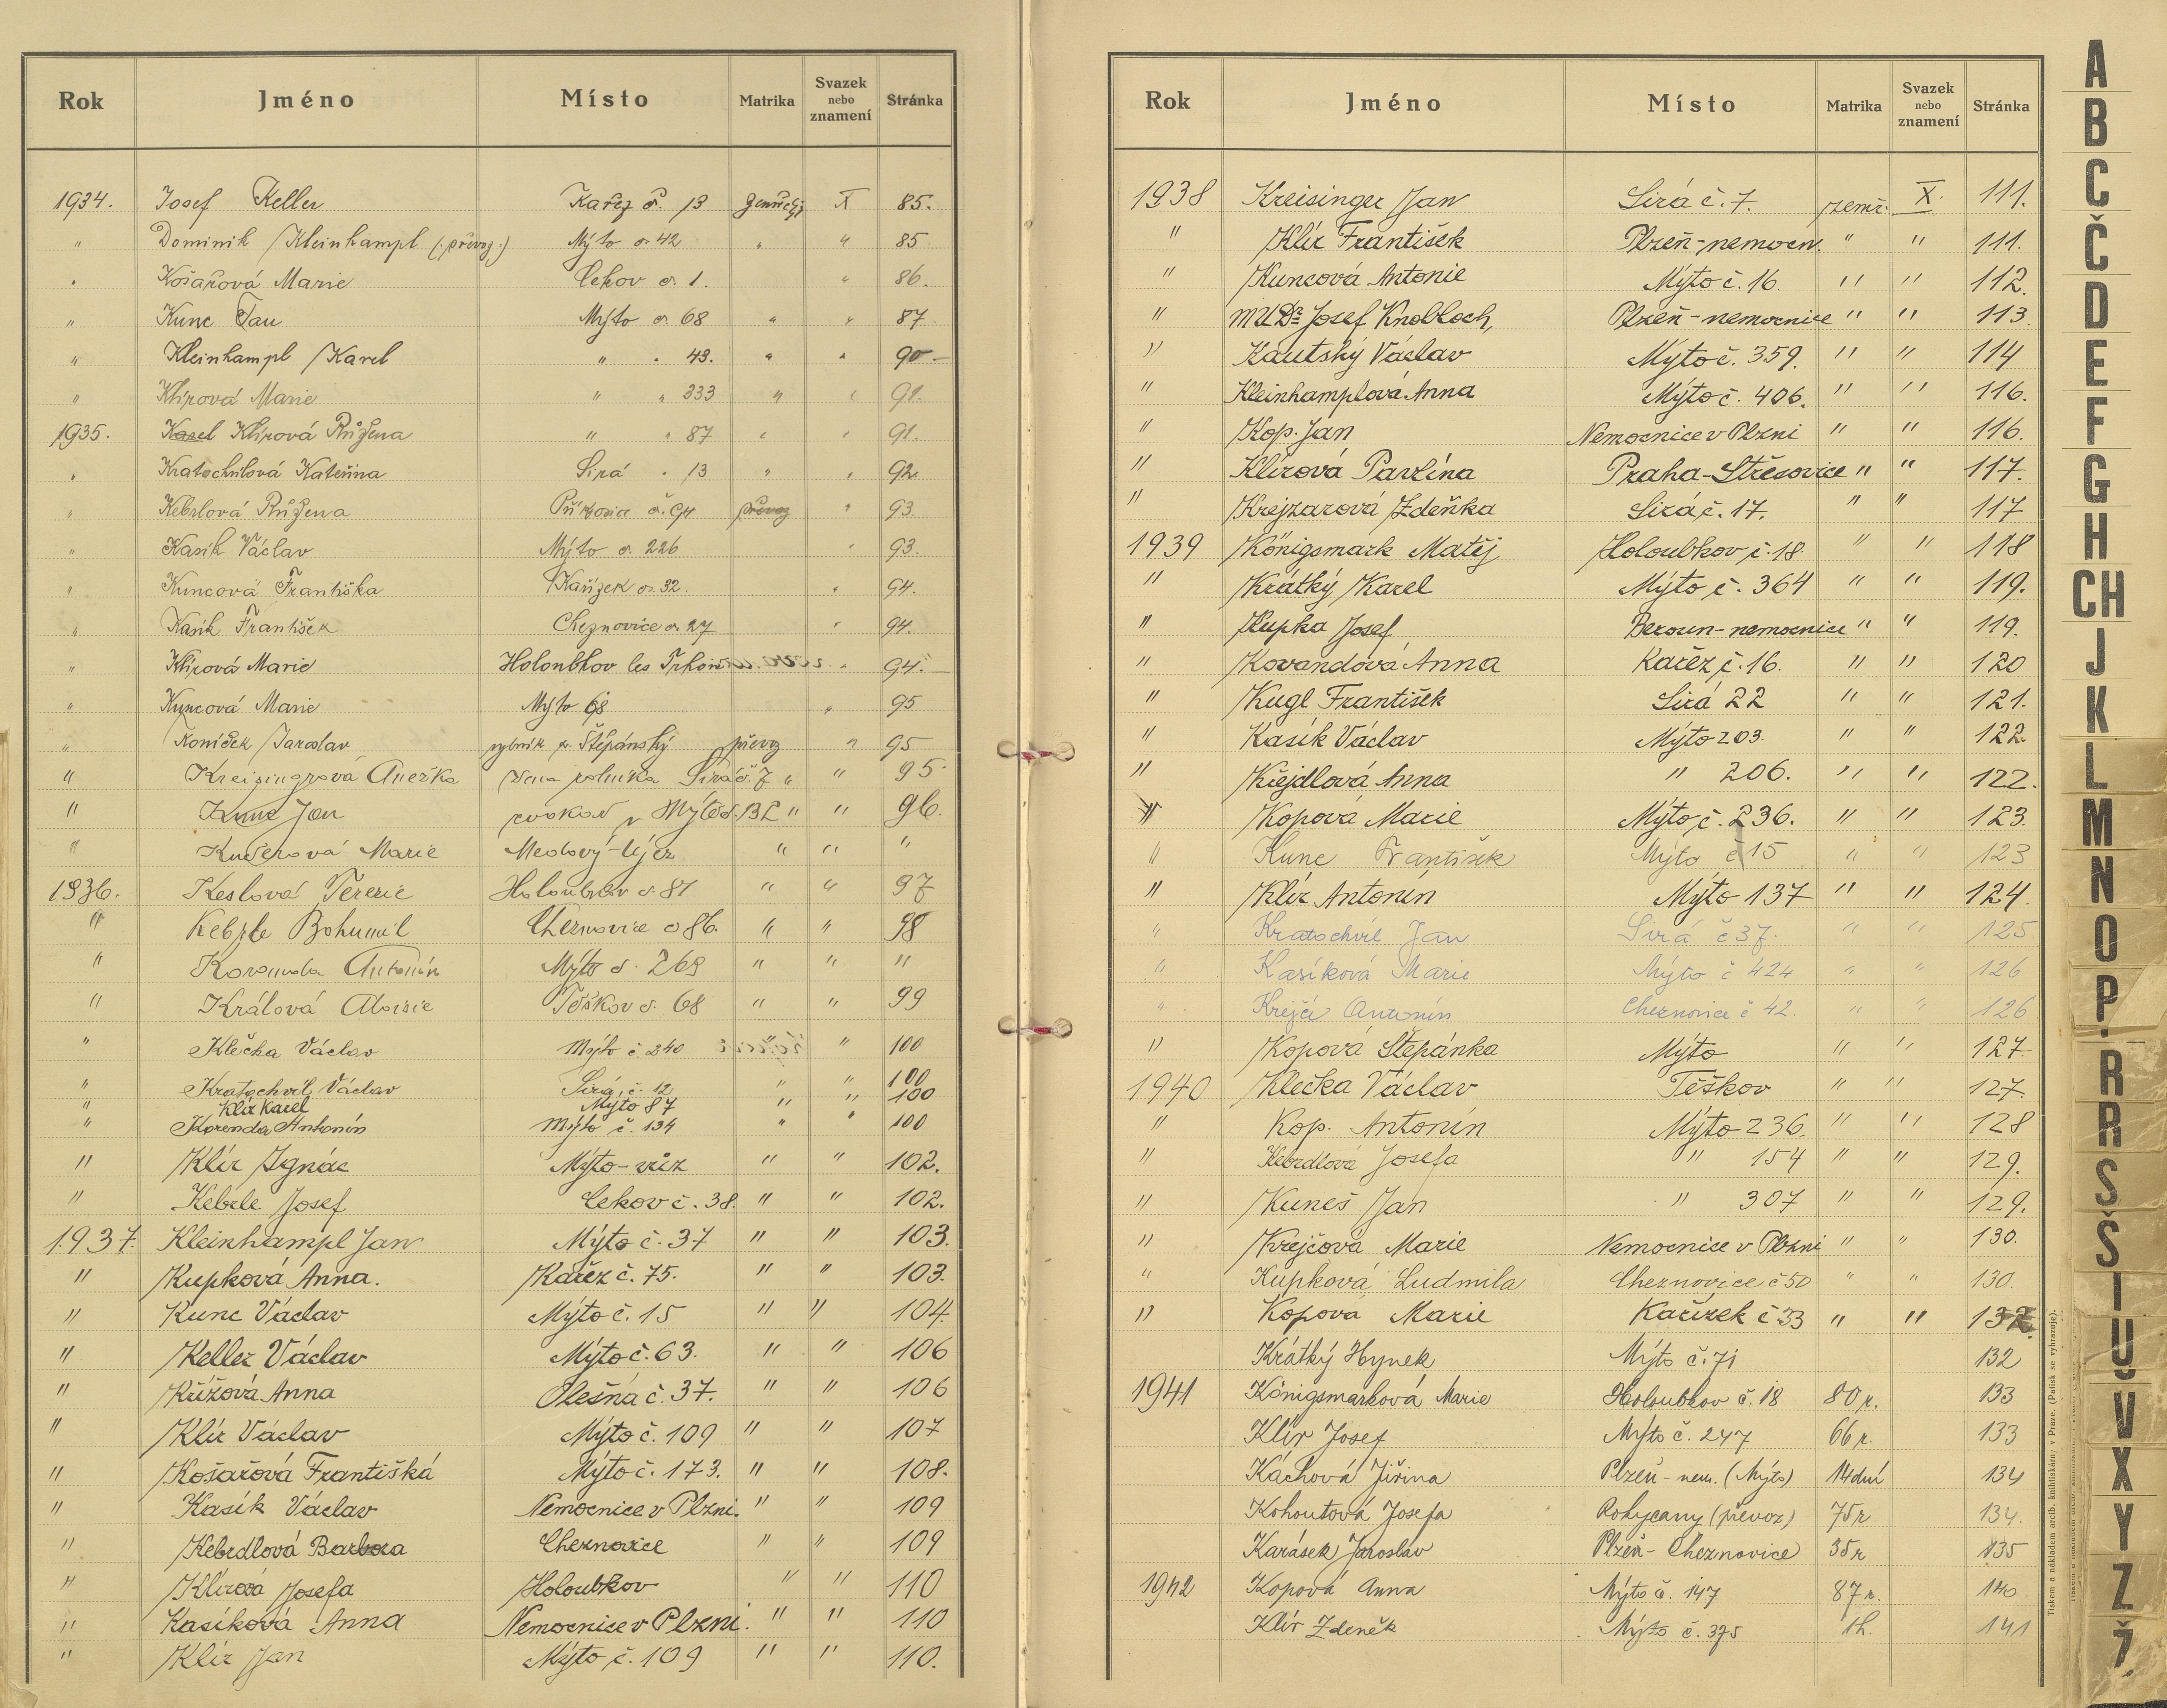 Rok Jméno Místo Matrika Svazek nebo znamení Stránka
1934. Josef Keller Kařez č. 13 zemřelý X 85.
" Dominik Kleinhampl (převoz.) Mýto č. 42 " " 85
" Košařová Marie Cekov č. 1. " 86.
" Kunc Jan Mýto č. 68 " " 87
" Kleinhampl Karel " " 43. " " 90
" Klírová Marie " " 333 " " 91.
1935. Karel Klírová Růžena " " 87 " " 91.
" Kratochvilová Kateřina Sirá " 13 " " 92.
" Kebrlová Růžena č. 94 převoz " 93.
" Kasík Václav Mýto č. 226 " 93.
" Kuncová Františka Kařízek č. 32. " 94.
" Kasík František Cheznovice č. 27 " 94.
" Klírová Marie Holoubkov les " 94.
" Kuncová Marie Mýto 68 " 95
" Koníček Jaroslav rybník p. Štěpánský převoz " 95
" Kreisingrová Anežka žena rolníka Sirá č. 7 " " 95
" Kunc Jan v Mýtě č. 132 " " 96.
" Kučerová Marie Medový-Újez " " "
1936. Keslová Terezie Holoubkov č. 87 " " 97
" Kebrle Bohumil Cheznovice č 86. " " 98
" Kovanda Antonín Mýto č. 269 " " "
" Králová Aloisie Těškov č. 68 " " 99
" Klečka Václav Mýto č 240 " " 100
" Kratochvíl Václav Sirá č. 12 " " 100
" Klír Karel Mýto 87 " " 100
" Korenda Antonín Mýto č. 134 " " 100
" Klír Ignác Mýto- " " 102.
" Kebrle Josef Cekov č. 38. " " 102.
1937. Kleinhampl Jan Mýto č. 37 " " 103.
" Kupková Anna. Kařez č. 75. " " 103.
" Kunc Václav Mýto č. 15 " " 104.
" Keller Václav Mýto č. 63. " " 106
" Křížová Anna Olešná č. 37. " " 106
" Klír Václav Mýto č. 109 " " 107
" Košařová Františká Mýto č. 173. " " 108.
" Kasík Václav Nemocnice v Plzni. " " 109
" Kebrdlová Barbora Cheznovice " " 109
" Klírová Josefa Holoubkov " " 110
" Kasíková Anna Nemocnice v Plzni. " " 110
" Klír Jan Mýto č. 109 " " 110.
Rok Jméno Místo Matrika Svazek nebo znamení Stránka
1938 Kreisinger Jan Sirá č. 7. zemř. X. 111.
" Klír František Plzeň-nemocn. " " 111.
" Kuncová Antonie Mýto č. 16. " " 112.
" MUDr. Josef Knobloch, Plzeň-nemocnice " " 113
" Kautský Václav Mýto č. 359. " " 114
" Kleinhamplová Anna Mýto č. 406. " " 116.
" Kop. Jan Nemocnice v Plzni " " 116.
" Klírová Pavlína Praha-Střešovice " " 117.
" Krejzarová Zdeňka Sirá č. 17. " " 117
1939 Königsmark Matěj Holoubkov č. 18. " " 118
" Krátký Karel Mýto č. 364 " " 119.
" Kupka Josef Beroun-nemocnice " " 119.
" Kovandová Anna Kařez č. 16. " " 120
" Kugl František Sirá 22 " " 121.
" Kasík Václav Mýto 203. " " 122.
" Křejdlová Anna " 206. " " 122.
" Kopová Marie Mýto č. 236. " " 123.
" Kunc František Mýto č 15 " " 123
" Klír Antonín Mýto 137 " " 124.
" Kratochvíl Jan Sirá č 37. " " 125
" Kasíková Marie Mýto č 424 " " 126
" Krejčí Antonín Cheznovice č 42. " " 126
" Kopová Štěpánka Mýto " " 127
1940 Klečka Václav Těškov " " 127.
" Kop. Antonín Mýto 236. " " 128
" Kebrdlová Josefa " 154 " " 129.
" Kuneš Jan " 307 " " 129.
" Krejčová Marie Nemocnice v Plzni " " 130.
" Kupková Ludmila Cheznovice č 50 " " 130.
" Kopová Marie Kařízek č 33 " " 132
Krátký Hynek Mýto č. 71 132
1941 Königsmarková Marie Holoubkov č. 18 80 r. 133
Klír Josef Mýto č. 247 66 r. 133
Káchová Jiřina Plzeň-nem. (Mýto) 14 dní 134
Kohoutová Josefa Rokycany (převoz) 75 r 134.
Karásek Jaroslav Plzeň-Cheznovice 35 r 135
1942 Kopová Anna Mýto č. 147 87 r. 140
Klír Zdeněk Mýto č. 375 1h. 141
Tiskem a nákladem arcib. knihtiskárny v Praze. (Patisk se vyhrazuje).
A
B
C
Č
D
E
F
G
H
CH
J
K
L
M
N
O
P
R
Ř
S
Š
T
U
V
X
Y
Z
Ž